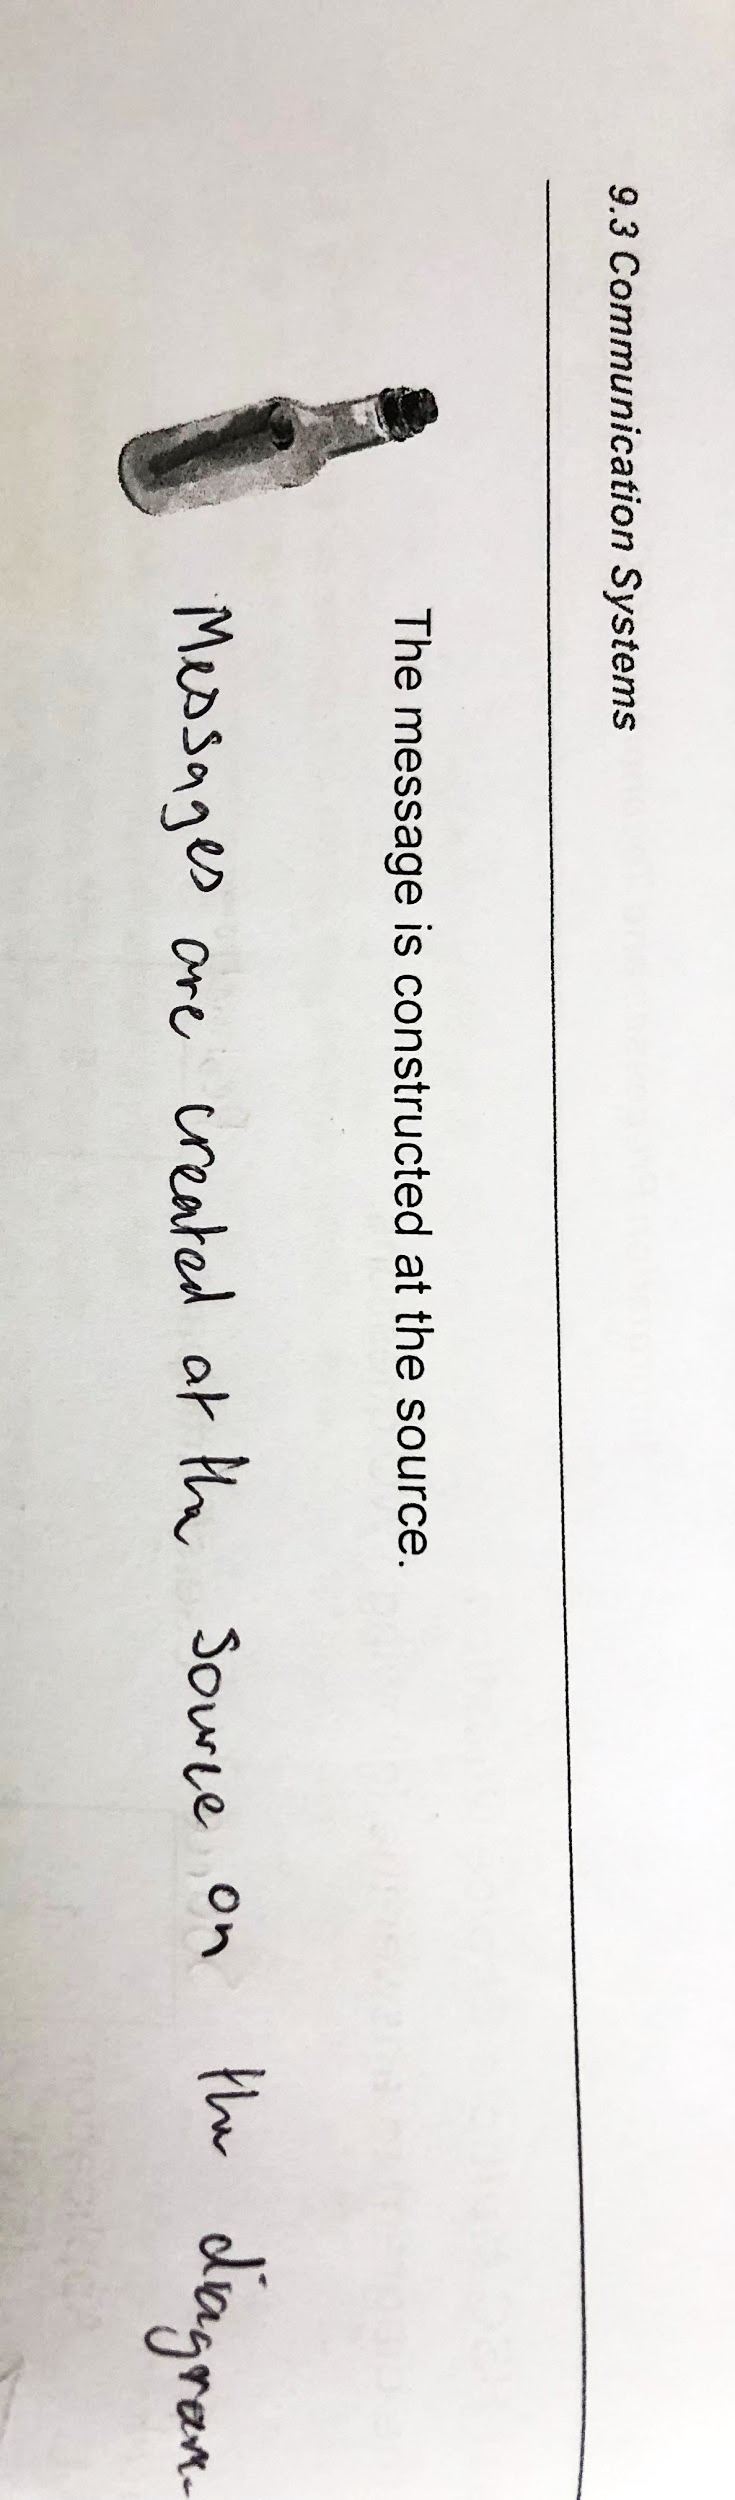 9.3 Communication Systems
The message is constructed at the source.
Messages are created at the source on the diagram.